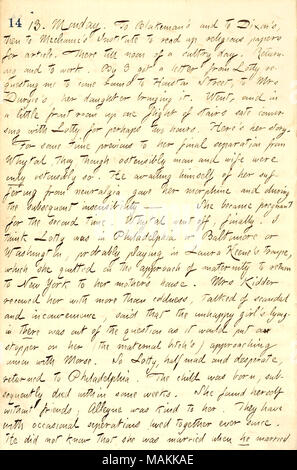 14
13. Monday. To Blakeman's and to Dixon's,
then to Mechanic's Institute to read up religious papers
for article. There till noon of a sultry day. Return-
ing and to work. By 3 got a letter from Lotty re-
questing me to come round to Houston Street, to Mrs
Durgie's, her daughter bringing it. Went, and in
a little front room up one flight of stairs sate conver-
sing with Lotty for perhaps two hours. Here's her story.
For some time previous to her final separation from
Whytal, they though ostensibly man and wife were
only ostensibly so. He availing himself of her suf-
fering from neuralgia gave her morphine and during
the subsequent insensibility. She became pregnant
for the second time. Whytal went off, finally. I
think Lotty was in Philadelphia or Baltimore or
Washington, probably playing in Laura Keene's troupe,
which she quitted on the approach of maternity to return
to New York to her mothers house. Mrs. Kidder
received her with more than coldness, talked of scandal
and inconvenience, said that the unhappy girl's lying-
in there was out of the question as it would put a
stopper on her (the maternal bitch's) approaching
union with Morse. So Lotty, half mad and desperate,
returned to Philadelphia. The child was born, sub-
sequently died within some weeks. She found herself
without friends; Alleyne was kind to her. They have
with occasional seperations lived together ever since.
He did not know that she was married when he married
alamy
MAKKAE